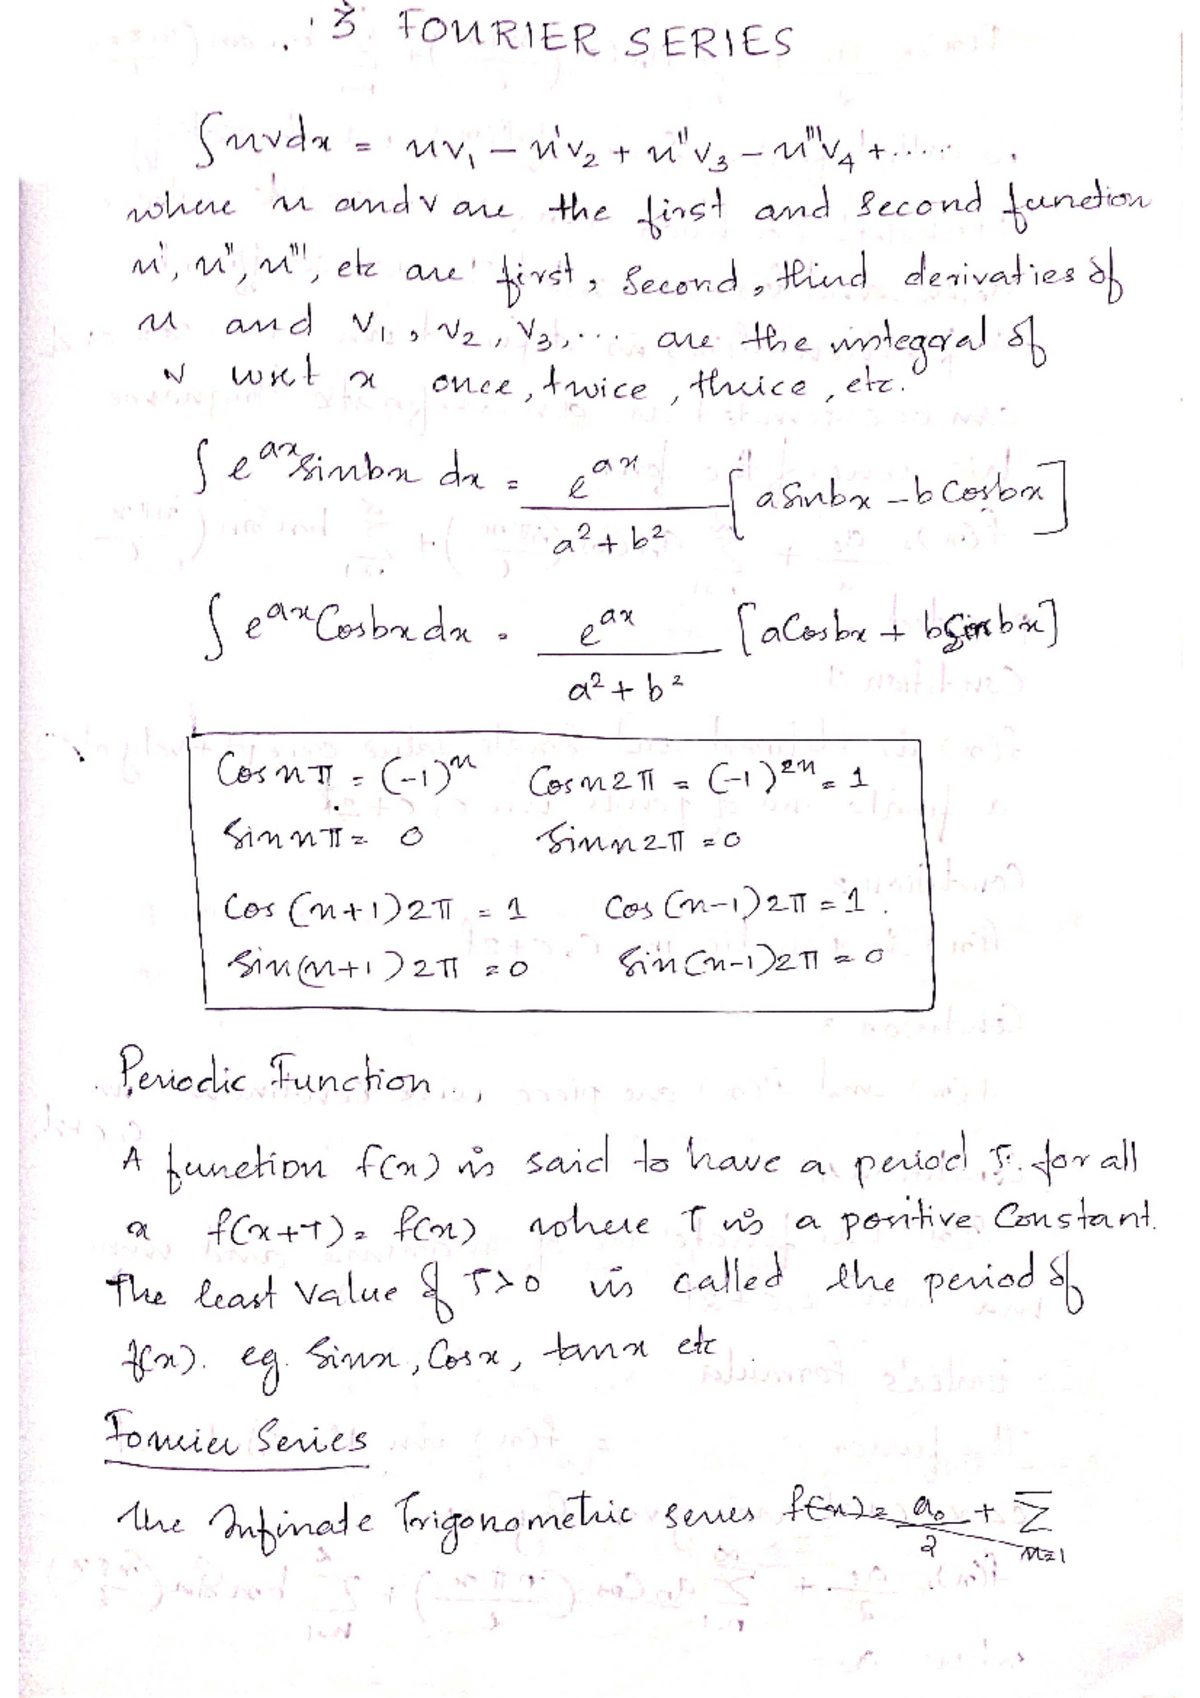 3 FOURIER SERIES
∫uvdx = uv₁ - u'v₂ + u''v₃ - u'''v₄ + .....
where u and v are the first and second function
u', u'', u''', etc are first, second, third derivaties of
u and v₁, v₂, v₃, ... are the integral of
v wrt x once, twice, thrice, etc.
∫ e^ax sinbx dx = e^ax / a² + b² [a sinbx - b cosbx]
∫ e^ax Cosbx dx = e^ax / a² + b² [a Cosbx + b sinbx]
Cos nπ = (-1)^n Cos n2π = (-1)^2n = 1
Sin nπ = 0 Sin n2π = 0
Cos (n+1)2π = 1 Cos (n-1)2π = 1.
Sin(n+1)2π = 0 Sin(n-1)2π = 0
Periodic Function.
A function f(x) is said to have a period T. for all
x f(x+T) = f(x) where T is a positive Constant.
The least value of T>0 is called the period of
f(x). eg. Sinx, Cosx, tanx etc
Fourier Series
The Infinate Trigonometric series f(x) = a₀/2 + Σ n=1